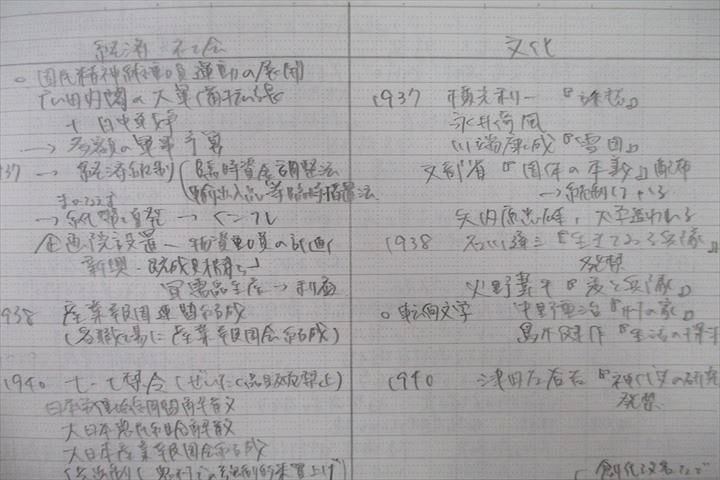 経済 社会
○国民精神総動員運動の展開
広田内閣の大軍備拡張
+日中戦争
→多額の軍事予算
37 →経済統制(臨時資金調整法
輸出入品等臨時措置法
企画院設置-物資動員の計画
新興・既成財閥
軍需品生産→利益
938 産業報国連盟結成
(各職場に産業報国会結成)
1940 七・七禁令(ぜいたく品製造禁止)
日本労働総同盟解散
大日本農民組合解散
大日本産業報国会結成
文化
1937 横光利一『旅愁』
永井荷風
川端康成『雪国』
文部省『国体の本義』配布
矢内原忠雄,大学追われる
1938 石川達三『生きてゐる兵隊』
発禁
火野葦平『麦と兵隊』
○転向文学 中野重治『村の家』
島木健作『生活の探求
1940 津田左右吉『神代史の研究
発禁